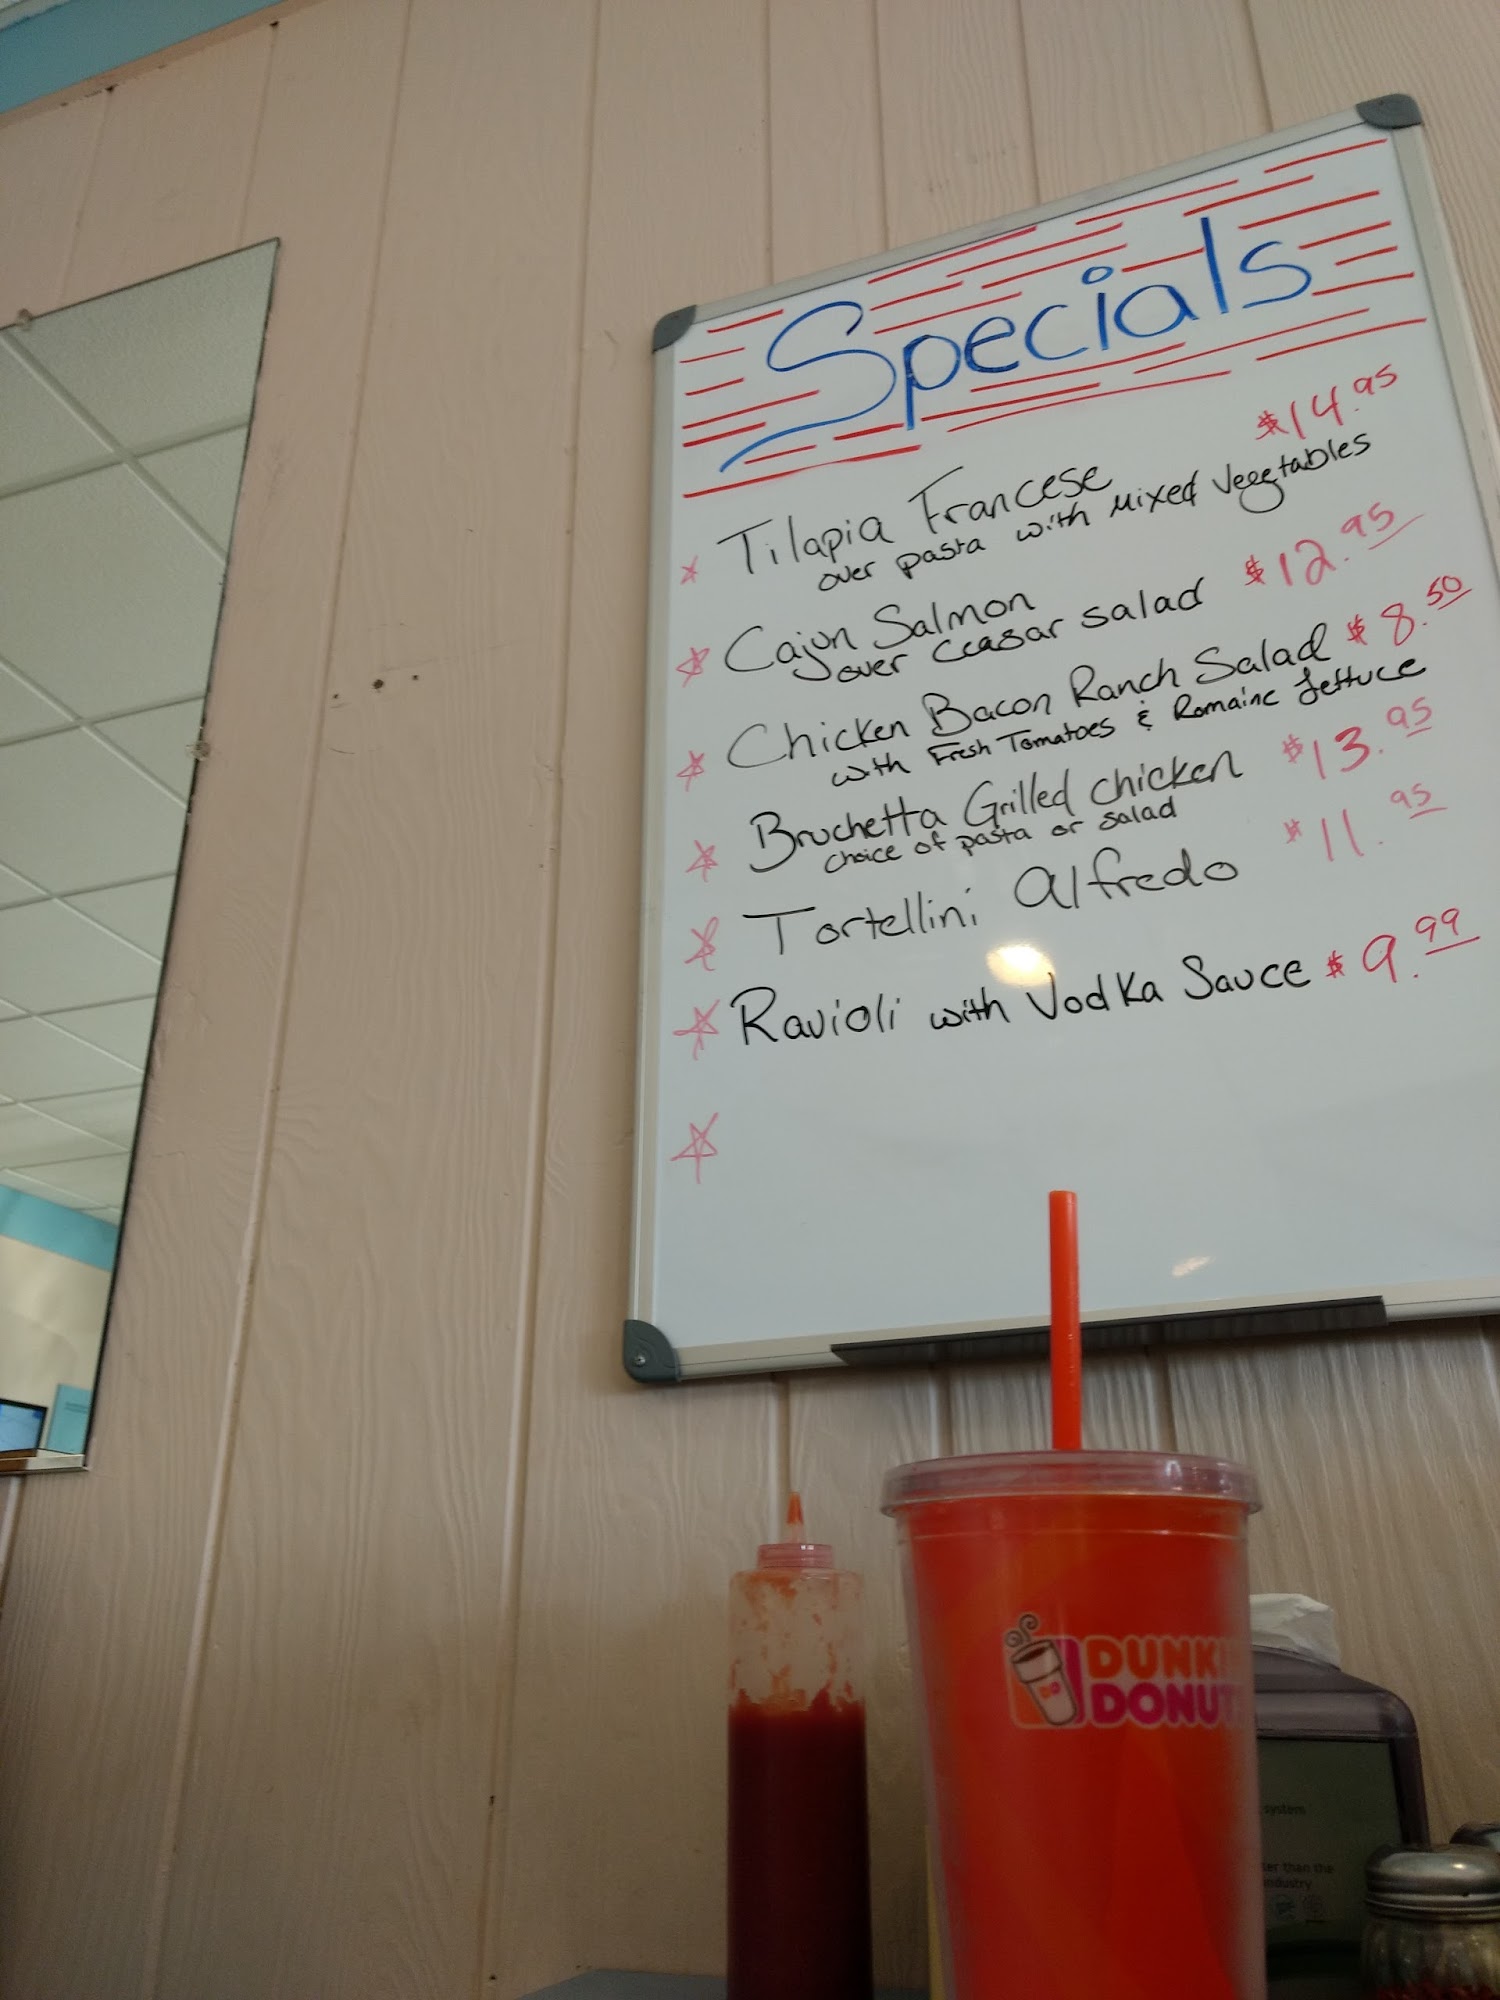 Specials
$14.95
Tilapia Francese
over pasta with Mixed Vegetables
Cajun Salmon
over Ceasar salad $12.95
Chicken Bacon Ranch Salad $8.50
with Fresh Tomatoes & Romaine Lettuce
Bruchetta Grilled chicken $13.95
choice of pasta or salad
Tortellini Alfredo $11.95
Ravioli with Vodka Sauce $9.99
DUNKI
DONUT
DD
system
than the
industry